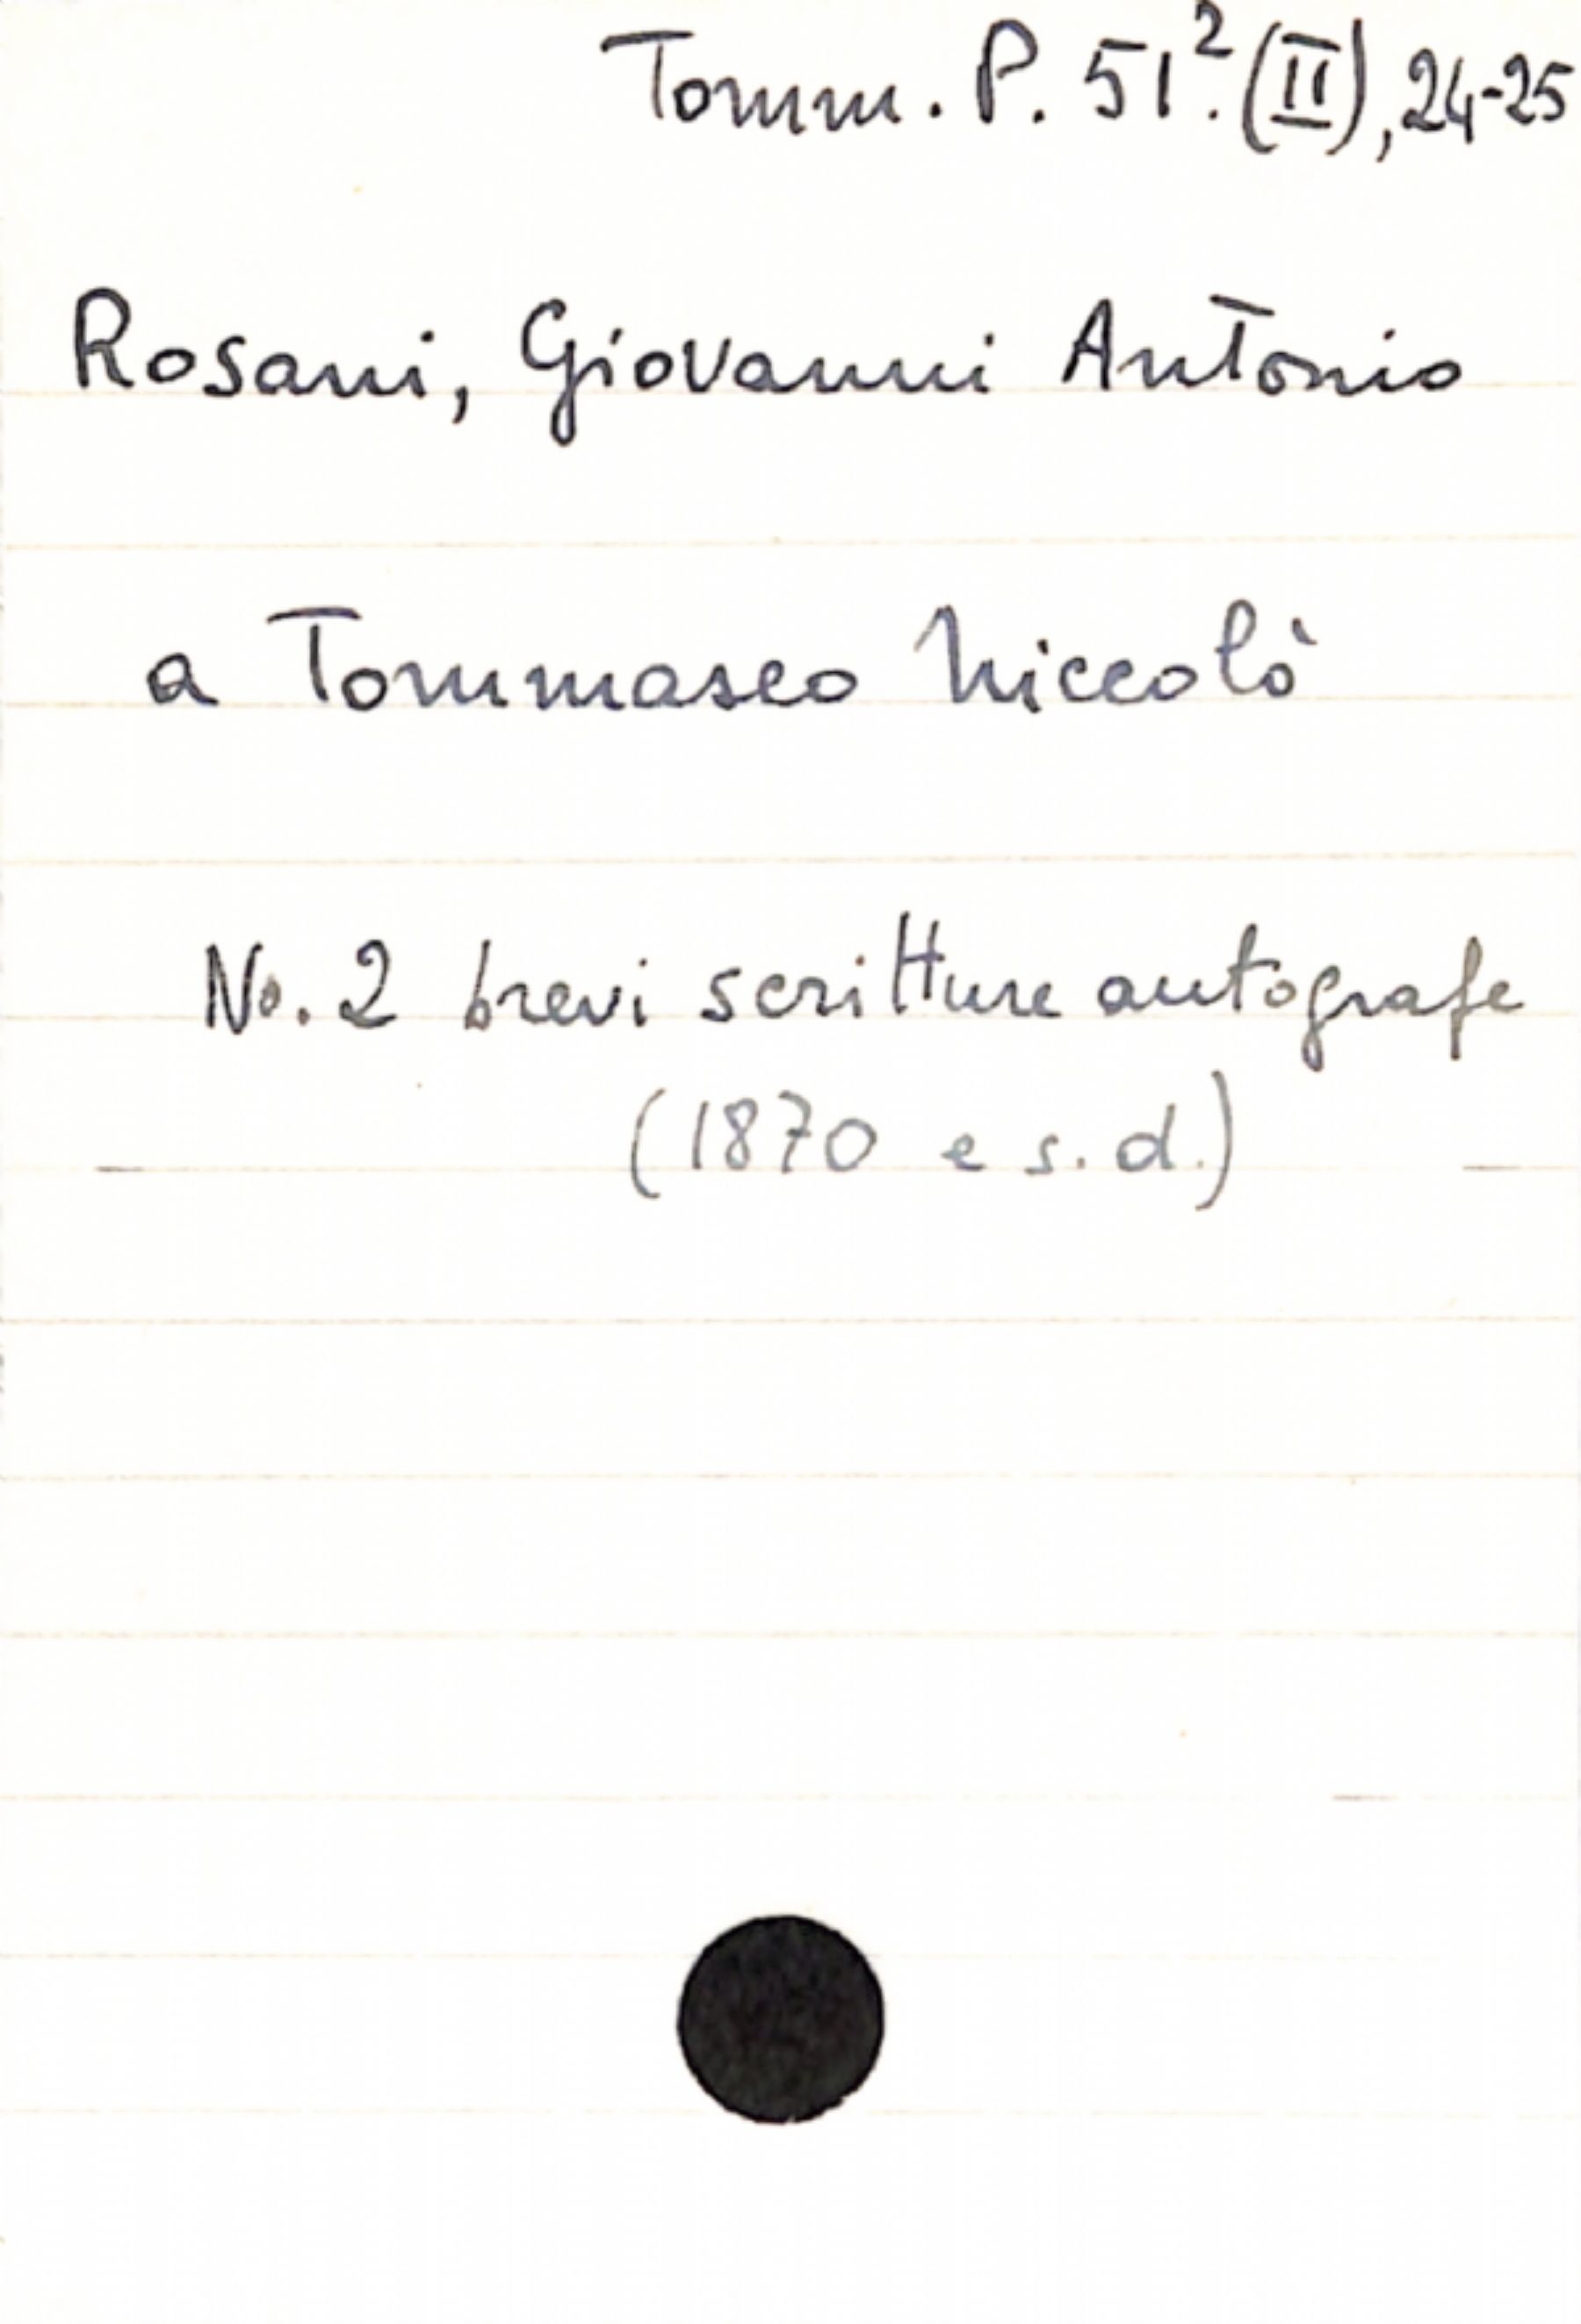 Tomm. P. 51.² (II), 24-25
Rosani, Giovanni Antonio
a Tommaseo Niccolò
No. 2 brevi scritture autografe
(1870 e s.d.)